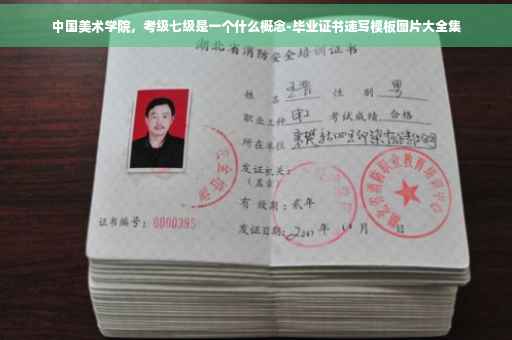 中国美术学院，考级七级是一个什么概念-毕业证书速写模板图片大全集
湖北省消防安全培训证
姓 名 王 性 别 男
职业工种 考试成绩 合格
所在单位
发证机关：
（盖章）
有 效 期：贰年
证书编号：0000395
发证日期：2007年 月 日
湖北省消防职业教育培训中心